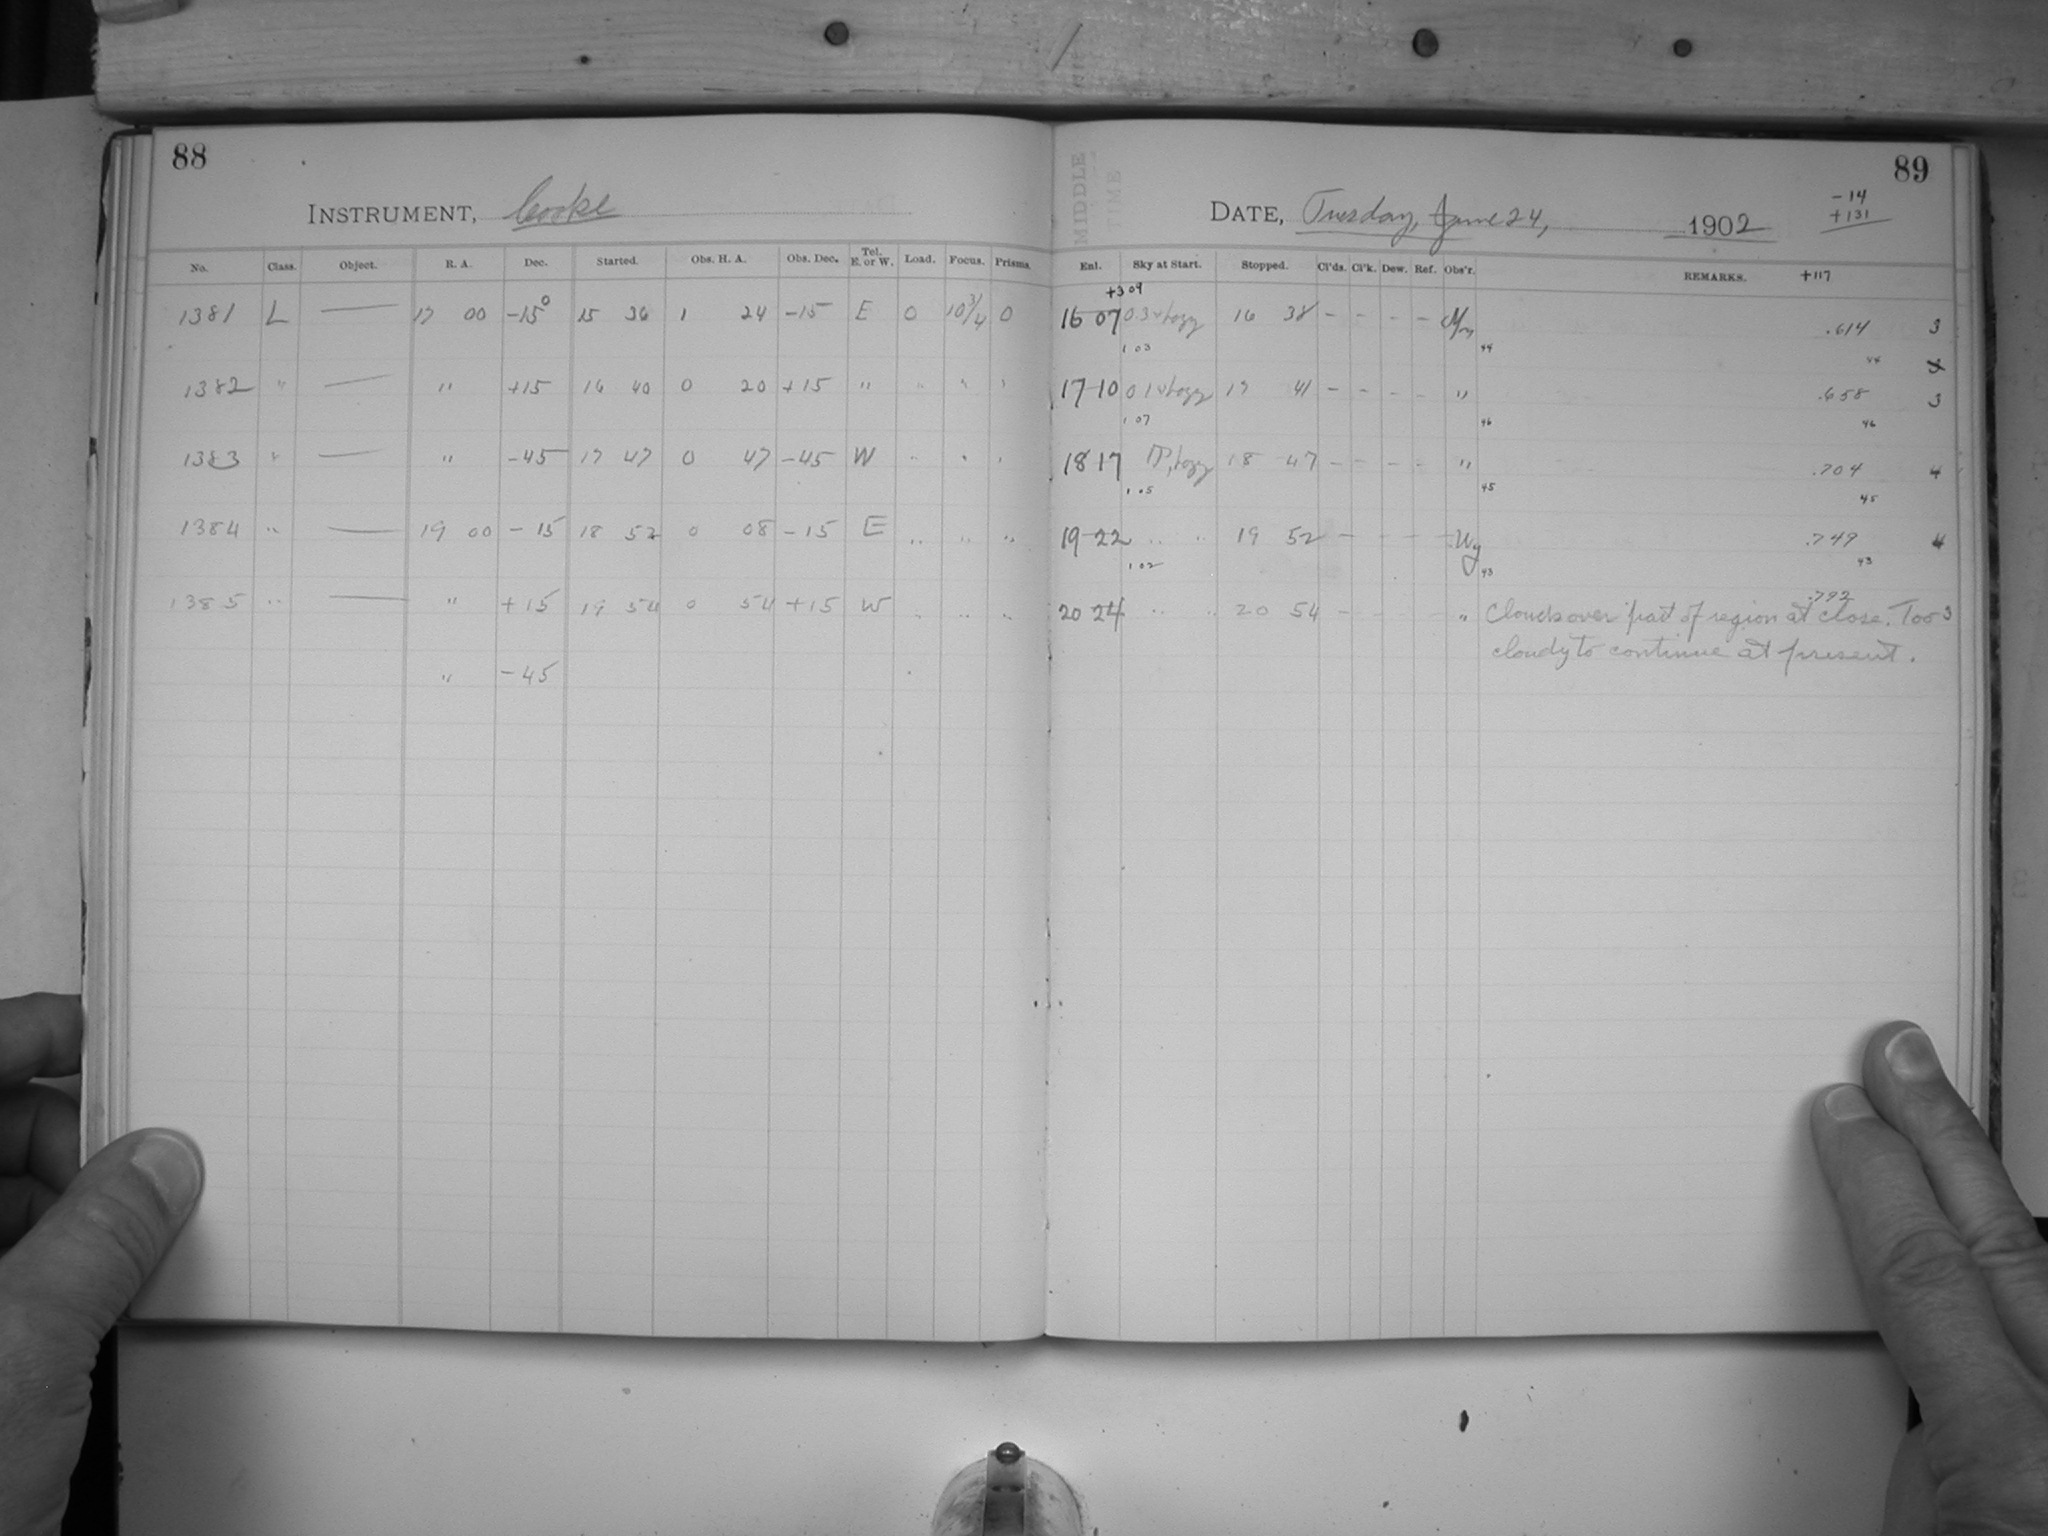 88
INSTRUMENT, Cooke
No. Class. Object. R. A. Dec. Started. Obs. H. A. Obs. Dec. Tel. E. or W. Load. Focus. Prisms.
1381 L — 17 00 -15° 15 36 1 24 -15 E 0 10 3/4 0
1382 " — " +15 16 40 0 20 +15 " " " "
1383 " — " -45 17 47 0 47 -45 W " " "
1384 " — 19 00 -15 18 52 0 08 -15 E " " "
1385 " — " +15 19 54 0 54 +15 W " " "
" -45
89
MIDDLE TIME
DATE, Tuesday, June 24, 1902
-14
+131
Enl. Sky at Start. Stopped. Cl'ds. Cl'k. Dew. Ref. Obs'r. REMARKS. +117
+309
16 07 hazy 16 38 - - - - .614 3
1 03 44 44
17-10 hazy 17 41 - - - - " .658 3
1 07 46 46
18 17 hazy 18 47 - - - - " .704 4
1 05 45 45
19-22 " " 19 52 - - - - Wy .749 4
1 02 43 43
.792
20 24 " " 20 54 - - - - " Clouds over part of region at close. Too 3
cloudy to continue at present.